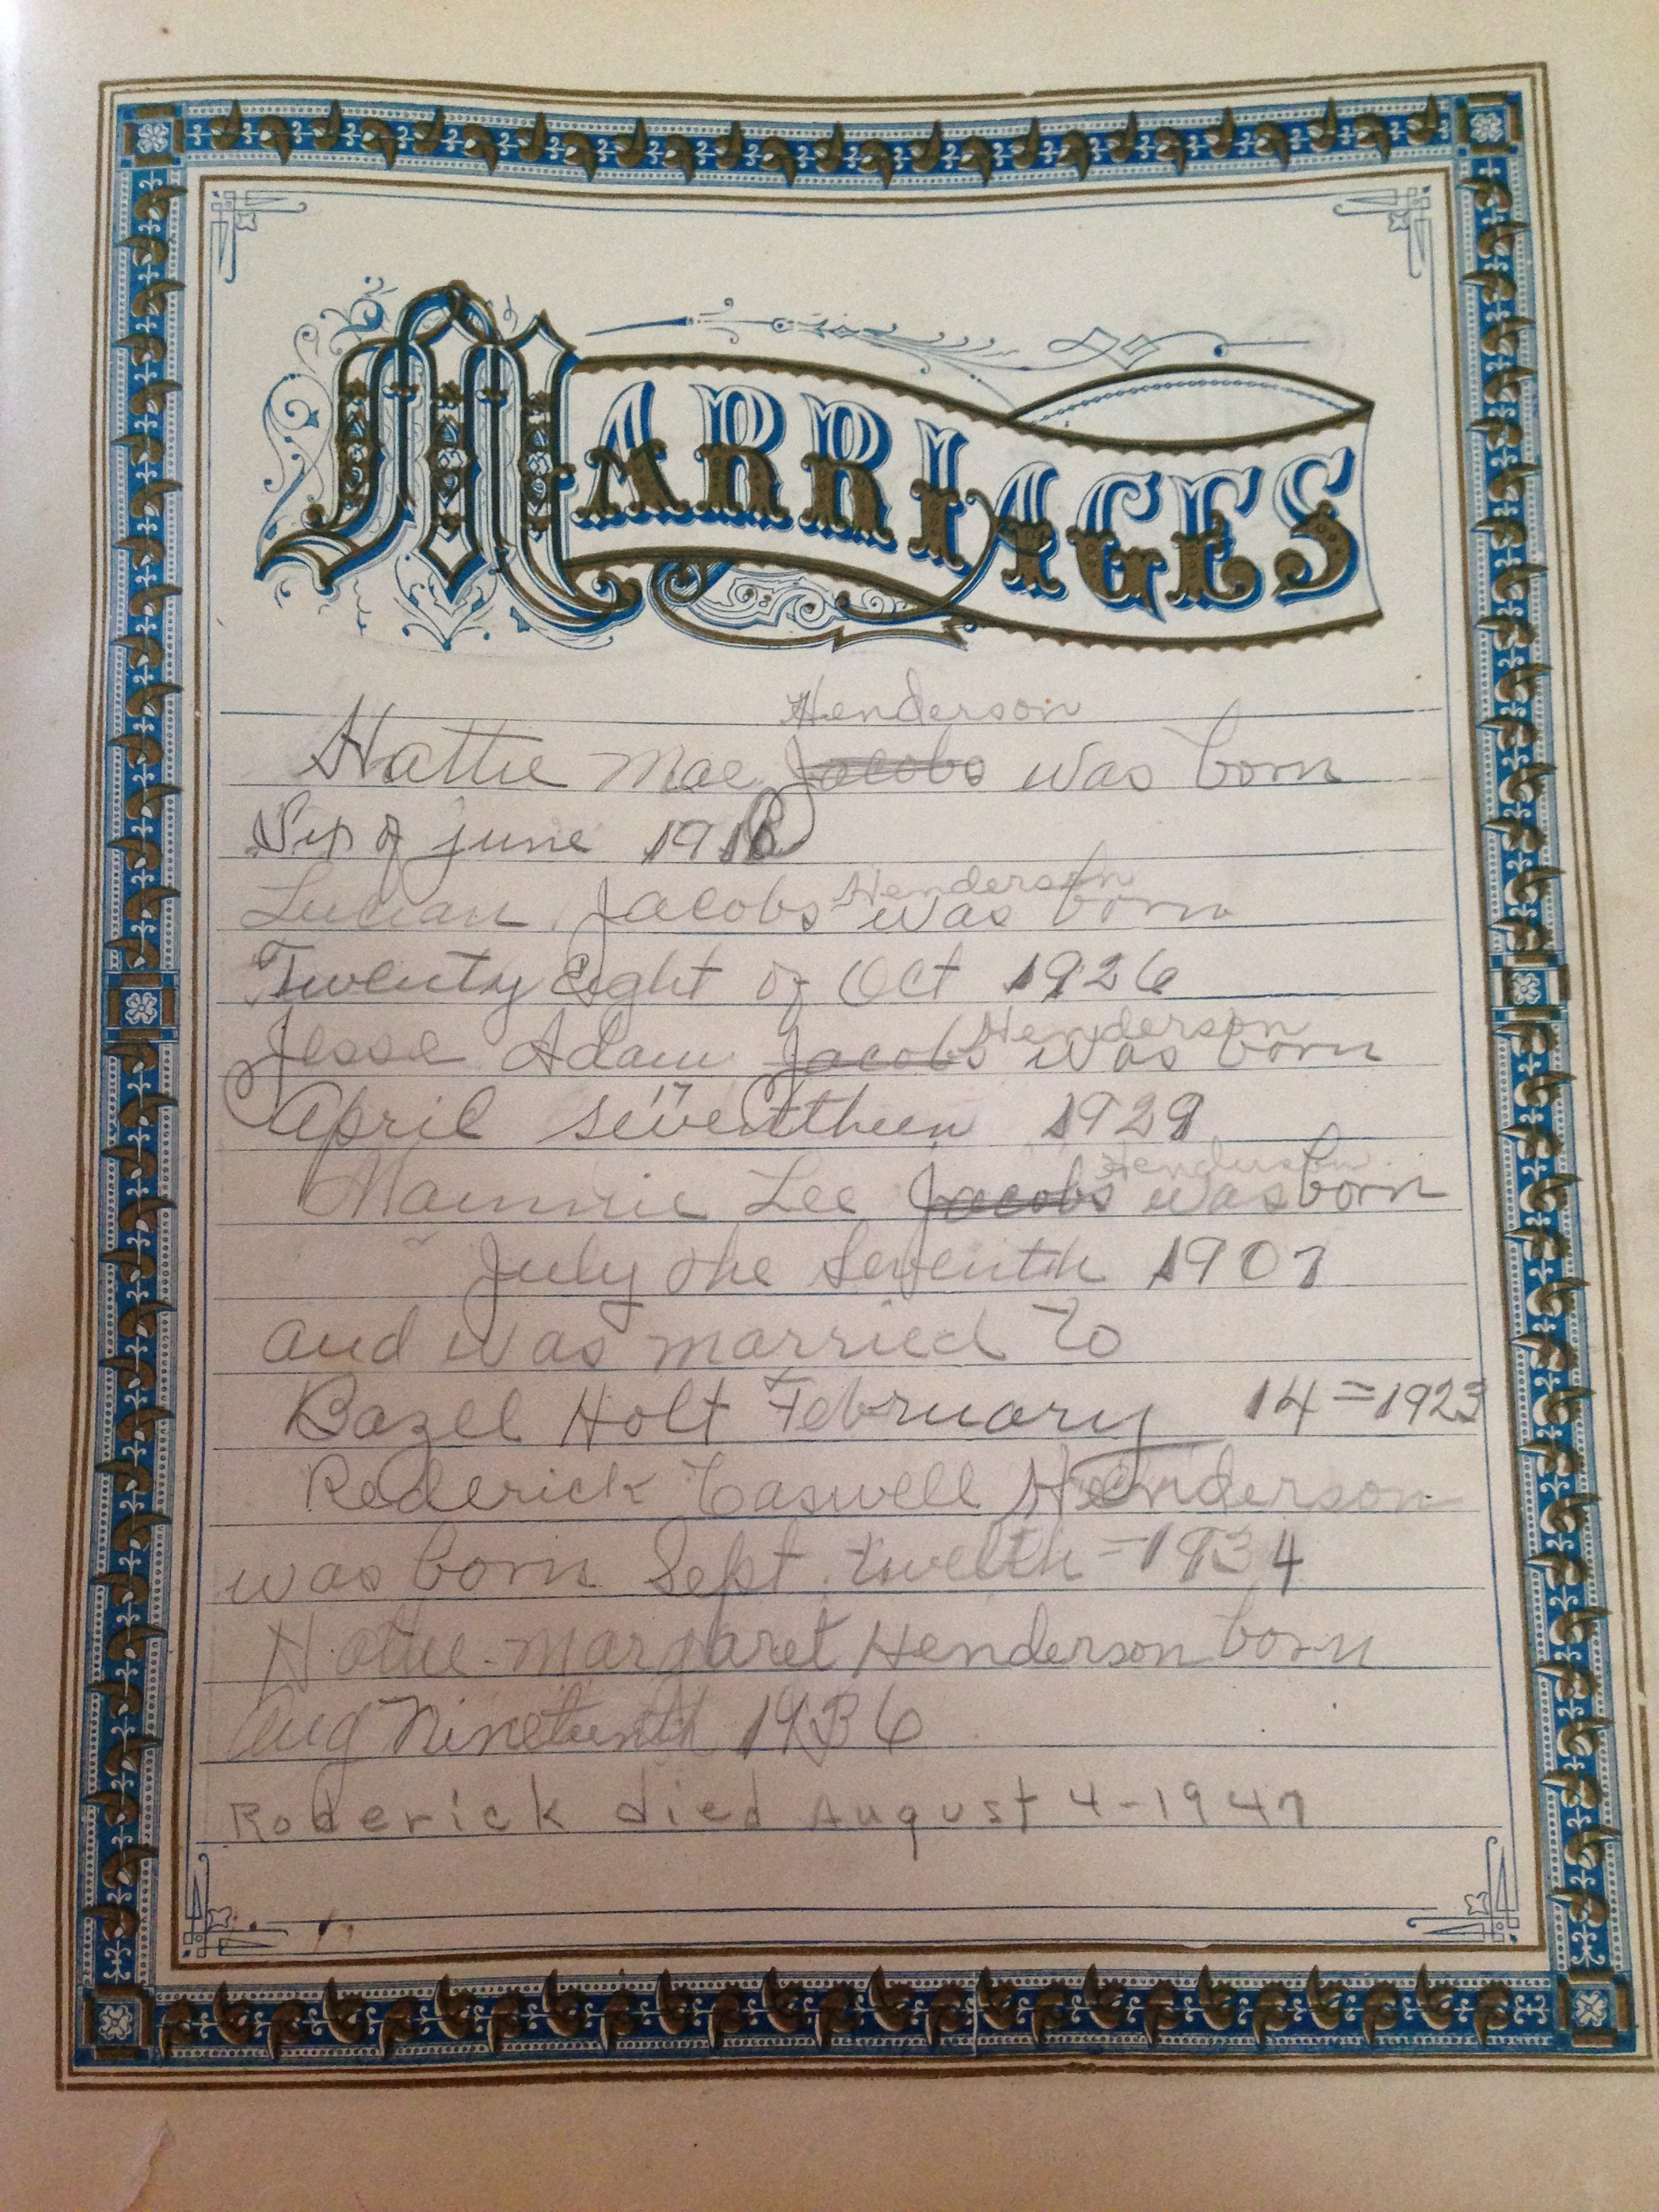 MARRIAGES
Henderson
Hattie Mae Jacobs was born
of june 191
Henderson
Lucian Jacobs was born
Twenty Eight of Oct 1926
Henderson
Jesse Adam Jacobs was born
17
April seventheen 1929
Henderson
Mammie Lee Jacobs was born
July the Seventh 1907
and was married to
Bazel Holt February 14=1923
Roderick Caswell Henderson
was born Sept. twelth = 1934
Hattie Margaret Henderson born
Aug Nineteenth 1936
Roderick died August 4-1947